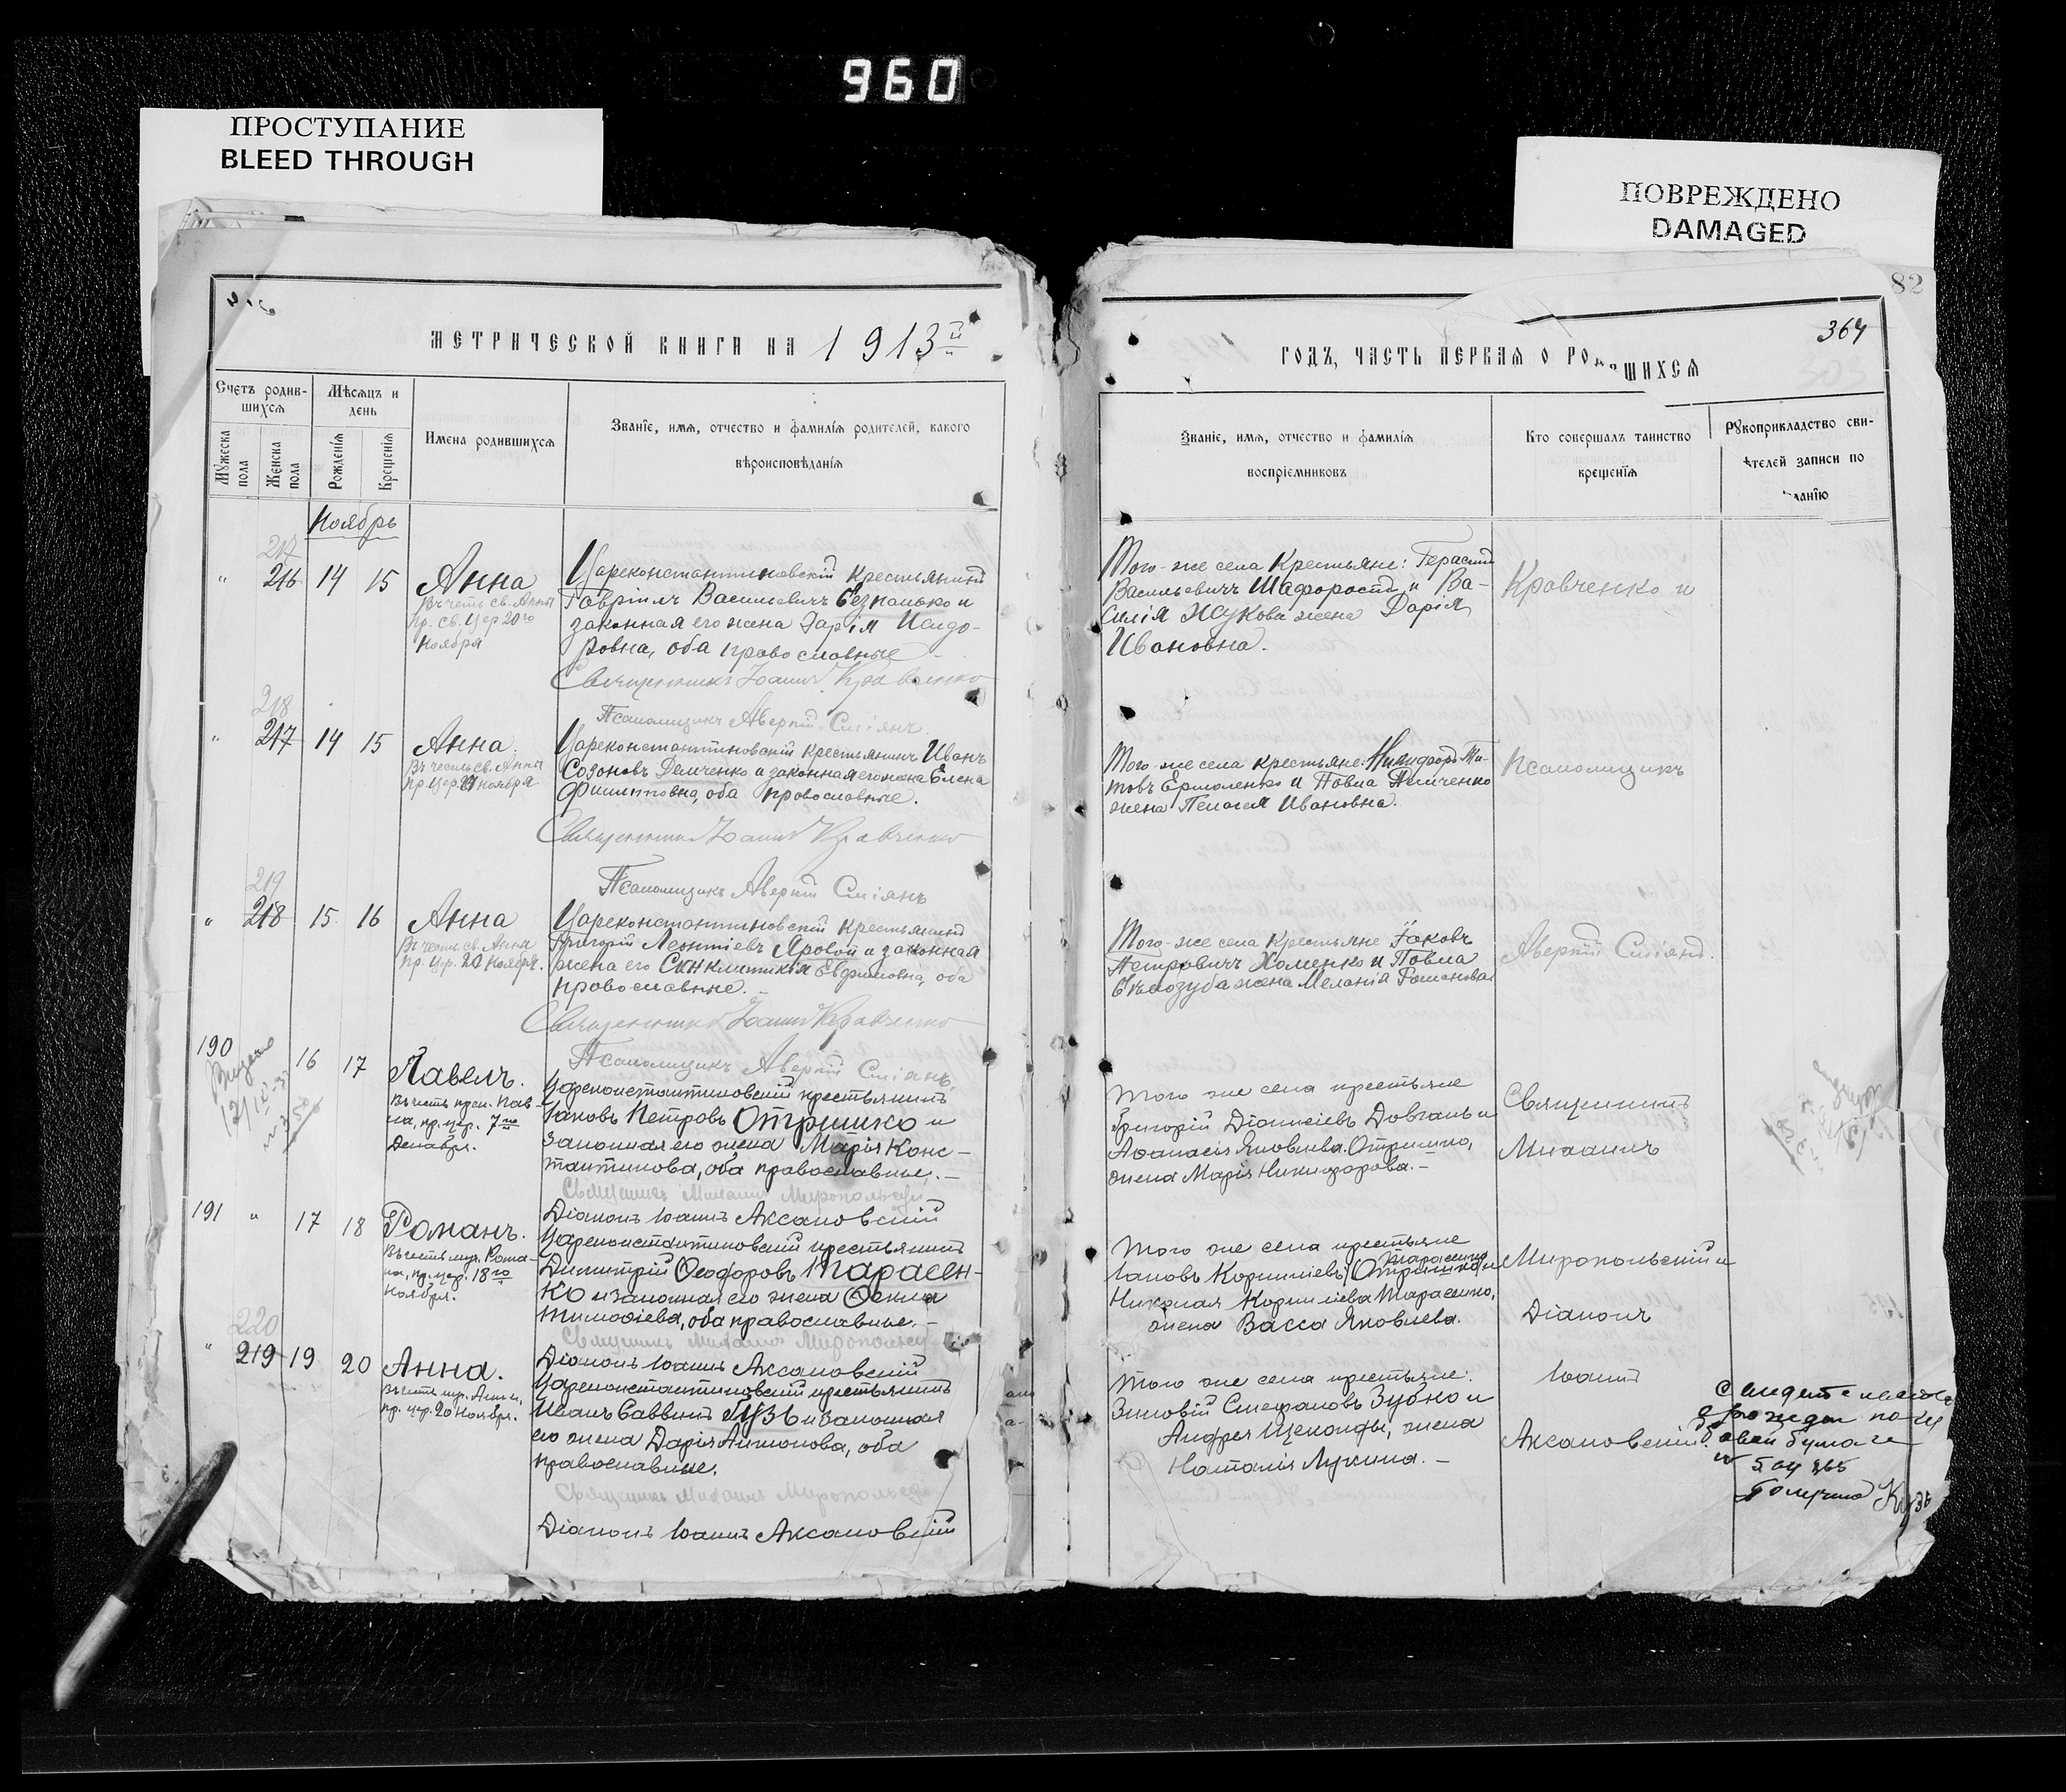 960
ПРОСТУПАНИЕ
BLEED THROUGH
ПОВРЕЖДЕНО
DAMAGED
82
МЕТРИЧЕСКОЙ КНИГИ НА 1913й
Счетъ родив-
шихся
Мѣсяцъ и
день
Мужеска
пола
Женска
пола
Рожденія
Крещенія
Имена родившихся
Званіе, имя, отчество и фамилія родителей, какого
вѣроисповѣданія
Ноябрь
217
" 216 14 15 Анна
Въ честь св. Анны
пр. св. Цер 20го
Ноября
Цареконстантиновскій крестьянинъ
Гавріилъ Васильевичъ Безпалько и
законная его жена Дарія Исидо-
ровна, оба православные
Священникъ Іоаннъ Кравченко
Псаломщикъ Аверкій Сміянъ
218
" 217 14 15 Анна.
Въ честь св. Анны
пр. Цер. 20 ноября
Цареконстантиновскій крестьянинъ Иванъ
Созоновъ Демченко и законная его жена Елена
Филипповна, оба православные.
Священникъ Іоаннъ Кравченко
Псаломщикъ Аверкій Сміянъ
219
" 218 15 16 Анна
Въ честь св. Анны
пр. Цр. 20 Ноября.
Цареконстантиновскій крестьянинъ
Григорій Леонтіевъ Яровой и законная
жена его Синклитикія Евфимовна, оба
православные.
Священникъ Іоаннъ Кравченко
Псаломщикъ Аверкій Сміянъ
190 16 17 Павелъ.
Въ честь препод. Пав-
ла, пр. цер. 7го
Декабря.
Цареконстантиновскій крестьянинъ
Іаковъ Петровъ Отришко и
законная его жена Марія Конс-
тантинова, оба православные.
Священникъ Михаилъ Миропольскій
Діаконъ Іоаннъ Аксановскій
191 " 17 18 Романъ.
Въ честь муч. Рома-
на, пр. цер. 18го
Ноября.
Цареконстантиновскій крестьянинъ
Димитрій Ѳеодоровъ Тарасен-
ко и законная его жена Ѳекла
Тимоѳіева, оба православные.
Священникъ Михаилъ Миропольскій
Діаконъ Іоаннъ Аксановскій
220
" 219 19 20 Анна.
Въ честь мр. Анны,
пр. цер. 20 Ноября.
Цареконстантиновскій крестьянинъ
Иванъ Саввинъ Гузь и законная
его жена Дарія Антонова, оба
православные.
Священникъ Михаилъ Миропольскій
Діаконъ Іоаннъ Аксановскій
364
ГОДЪ, ЧАСТЬ ПЕРВАЯ О РО ШИХСЯ
Званіе, имя, отчество и фамилія
воспріемниковъ
Кто совершалъ таинство
крещенія
Рукоприкладство сви-
ѣтелей записи по
ланію
Того-же села Крестьяне: Герасимъ
Васильевичъ Шафоростъ и Ва-
силія Жукова жена Дарія
Ивановна.
Кравченко и
Того-же села крестьяне: Никифоръ Ти-
товъ Ермоленко и Павла Демченко
жена Пелагея Ивановна.
Псаломщикъ
Того-же села Крестьяне Іаковъ
Петровичъ Хоменко и Павла
Бѣлозуба жена Меланія Романова
Аверкій Сміянъ.
Того же села крестьяне
Григорій Діонисіевъ Довгань и
Аѳанасія Яковлева Отришко,
жена Марія Никифорова.
Священникъ
Михаилъ
Того же села крестьяне
Іаковъ Корниліевъ Отришко Тарасенко и
Николая Корниліева Тарасенко,
жена Васса Яковлева.
Миропольскій и
Діаконъ
Того же села крестьяне:
Зиновій Стефановъ Зубко и
Андрея Щеконды, жена
Наталія Лукина.
Іоаннъ
Аксановскій.
Получил Кузь